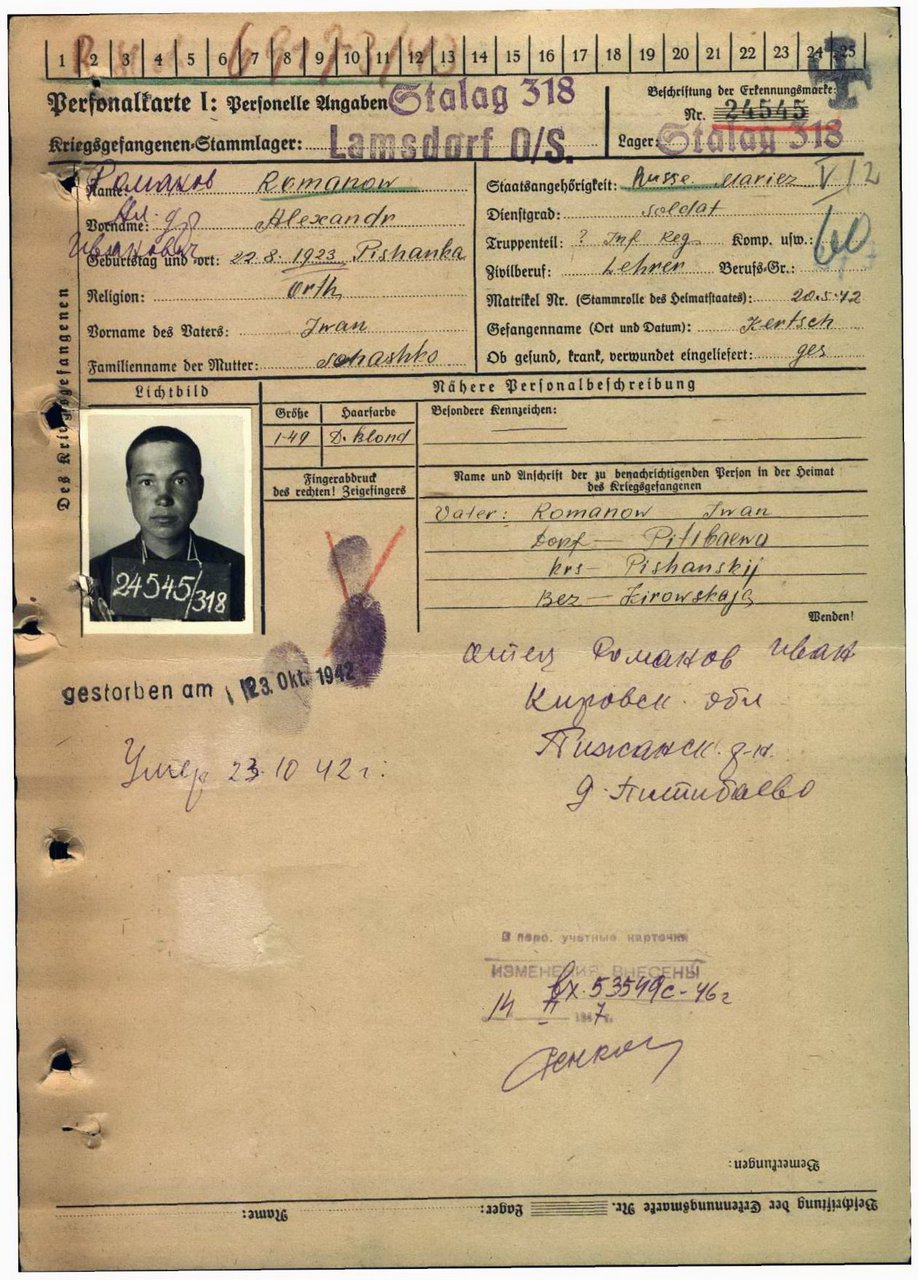 1 2 3 4 5 6 7 8 9 10 11 12 13 14 15 16 17 18 19 20 21 22 23 24 25
Personalkarte I: Personelle Angaben
Stalag 318
Kriegsgefangenen-Stammlager: Lamsdorf O/S.
Beschriftung der Erkennungsmarke:
Nr. 24545
Lager: Stalag 318
Des Kriegsgefangenen
Романов
Name: Romanow
Ал-др
Vorname: Alexandr
Иванович
Geburtstag und -ort: 22.8.1923 Pishanka
Religion: Orth
Vorname des Vaters: Iwan
Familienname der Mutter:
Staatsangehörigkeit: Russe V/12
Dienstgrad: Soldat
Truppenteil: ? Inf Reg Komp. usw.: 60
Zivilberuf: Lehrer Berufs-Gr.:
Matrikel Nr. (Stammrolle des Heimatstaates): 20.5.42
Gefangenname (Ort und Datum): Kertsch
Ob gesund, krank, verwundet eingeliefert: ges
Lichtbild
Nähere Personalbeschreibung
Größe Haarfarbe
1.49 D. blond
Besondere Kennzeichen:
Fingerabdruck
des rechten! Zeigefingers
Name und Anschrift der zu benachrichtigenden Person in der Heimat
des Kriegsgefangenen
Vater: Romanow Iwan
Dorf — Pitibaewo
krs — Pishanskij
Bez — Kirowskaja
Wenden!
24545/318
gestorben am 23. Okt. 1942
Умер 23.10 42 г.
отец Романов Иван
Кировск. обл
Пижанск. р-н.
д. Питибаево
В перс. учетные карточки
ИЗМЕНЕНИЯ ВНЕСЕНЫ
вх. 53549с-46г
14 II 1947 г.
Bemerkungen:
Beschriftung der Erkennungsmarke Nr. Lager: Name: